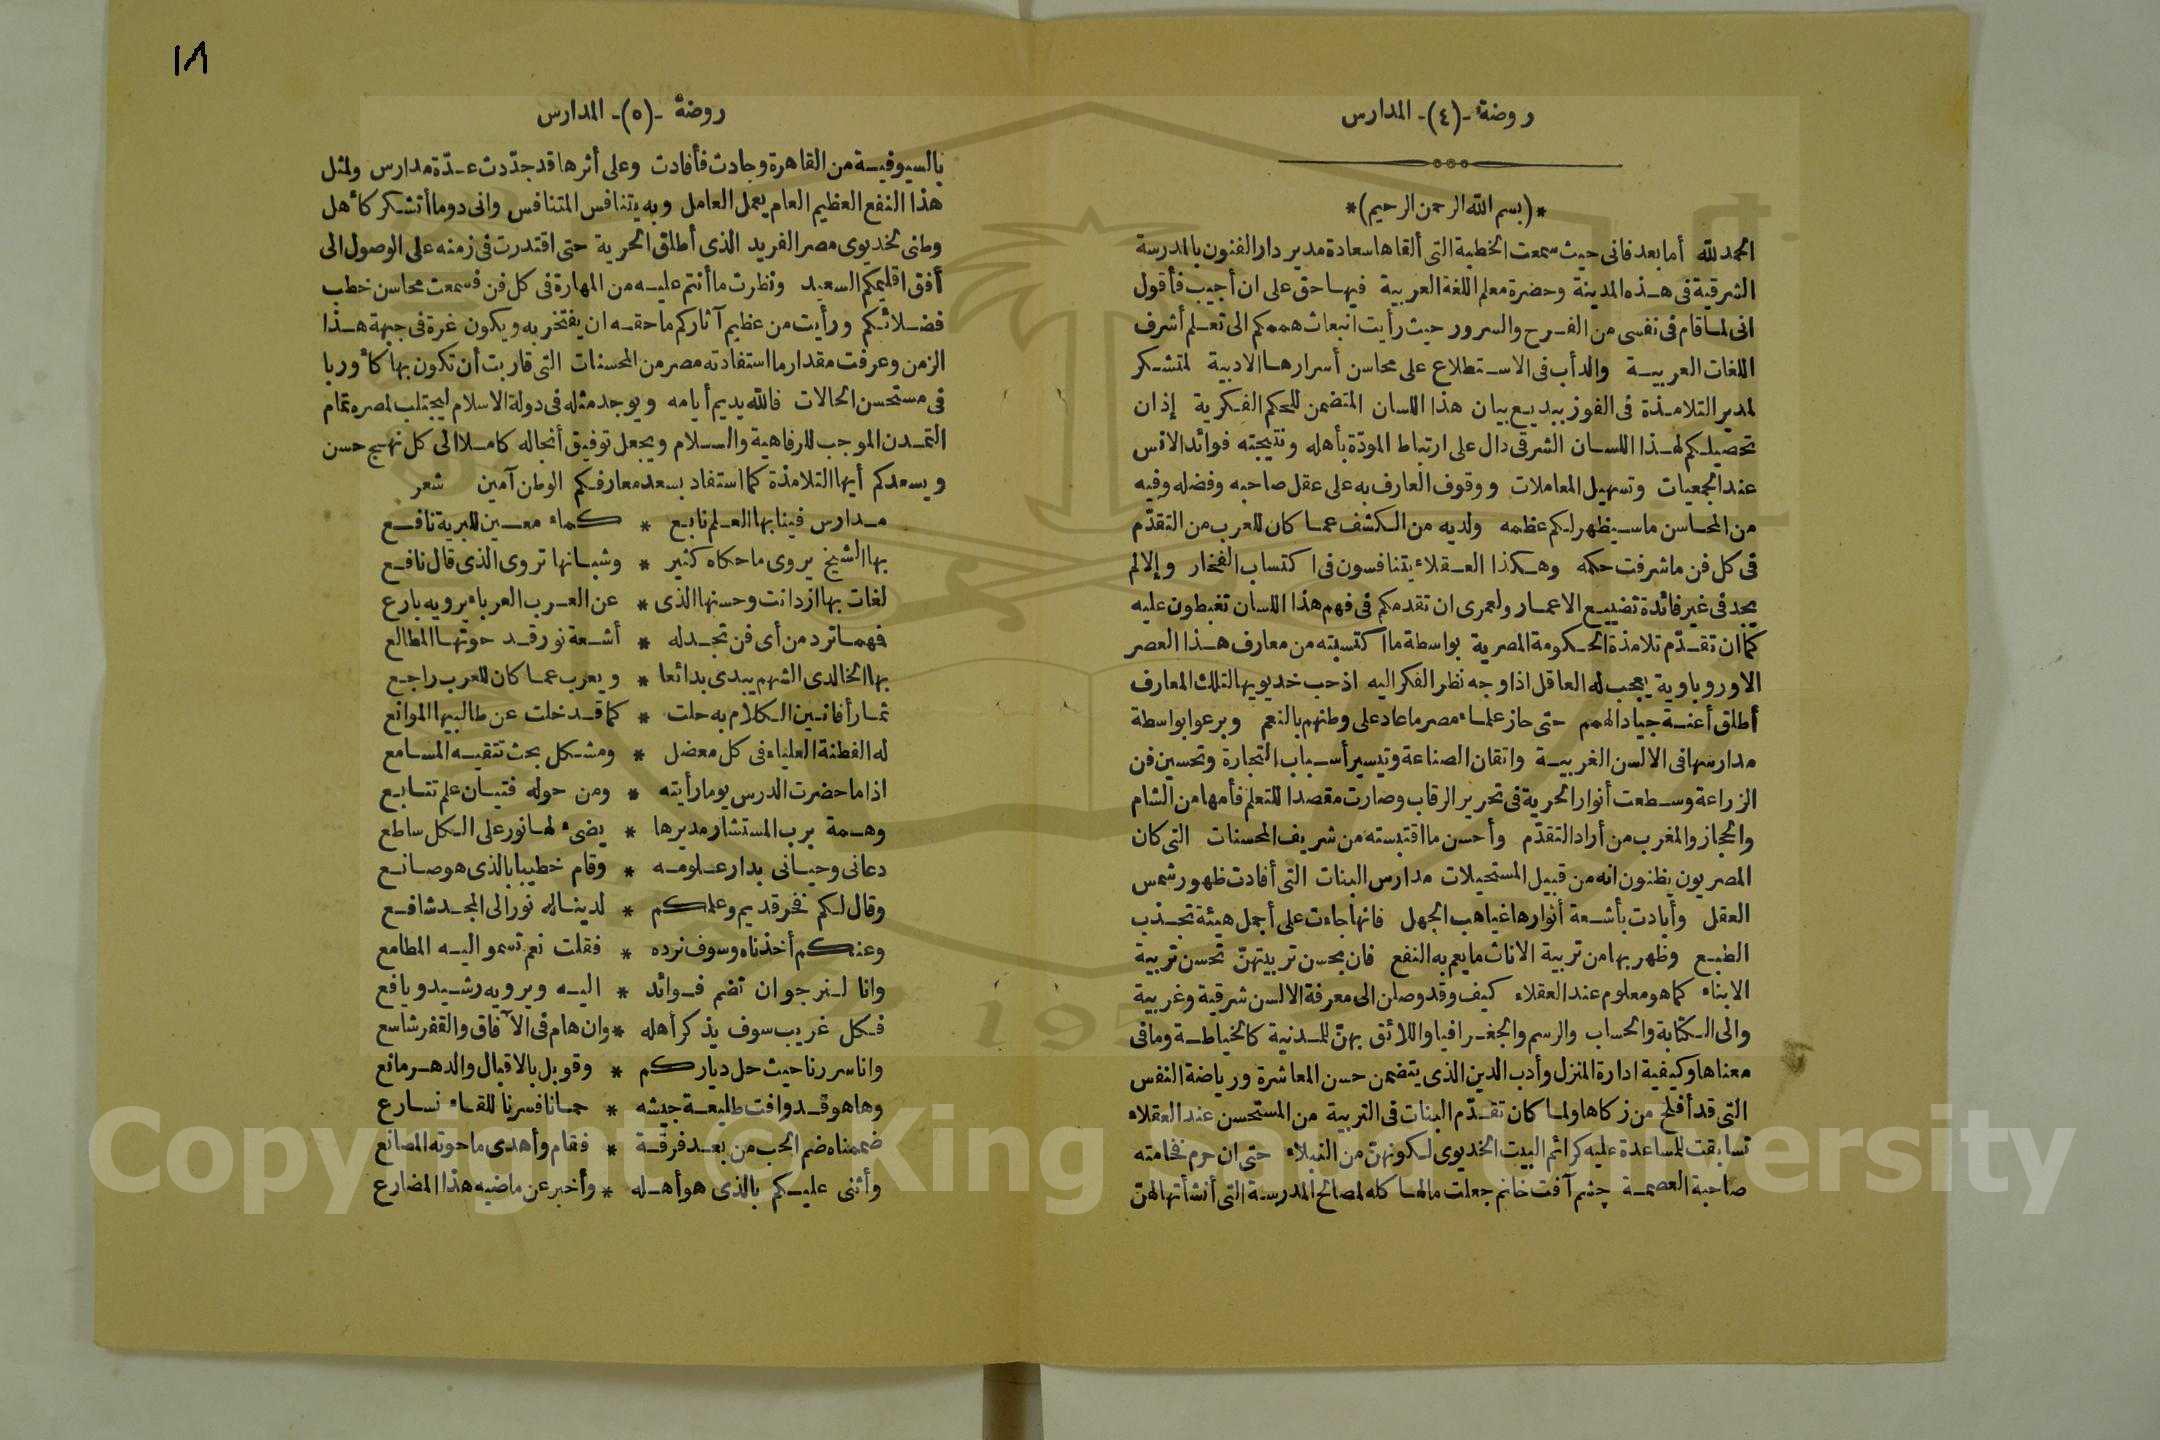 ١٨
روضة -(٤)- المدارس
*(بسم الله الرحمن الرحيم)*
الحمد لله أما بعد فانى حيث سمعت الخطبة التى ألقاها سعادة مدير دار الفنون بالمدرسة
الشرقية فى هذه المدينة وحضرة معلم اللغة العربية فيها حق على ان أجيب فأقول
انى لما قام فى نفسى من الفرح والسرور حيث رأيت انبعاث هممكم الى تعلم أشرف
اللغات العربية والدأب فى الاستطلاع على محاسن أسرارها الادبية لمتشكر
لمدير التلامذة فى الفوز ببديع بيان هذا اللسان المتضمن للحكم الفكرية إذ ان
تحصيلكم لهذا اللسان الشرقى دال على ارتباط المودّة بأهله ونتيجته فوائد الانس
عند الجمعيات وتسهيل المعاملات ووقوف العارف به على عقل صاحبه وفضله وفيه
من المحاسن ما سيظهر لكم عظمه ولديه من الكشف عما كان للعرب من التقدّم
فى كل فن ما شرفت حكمه وهكذا العقلاء يتنافسون فى اكتساب الفخار وإلا لم
يجد فى غير فائدة تضييع الاعمار ولعمرى ان تقدمكم فى فهم هذا اللسان تغبطون عليه
كما ان تقدّم تلامذة الحكومة المصرية بواسطة ما اكتسبته من معارف هذا العصر
الاوروباوية يعجب له العاقل اذا وجه نظر الفكر اليه اذ حب خديويها لتلك المعارف
أطلق أعنة جياد الهمم حتى حاز علماء مصر ما عاد على وطنهم بالنعم وبرعوا بواسطة
مدارسها فى الالسن الغربية واتقان الصناعة وتيسير أسباب التجارة وتحسين فن
الزراعة وسطعت أنوار الحرية فى تحرير الرقاب وصارت مقصدا للتعلم فأمها من الشام
والحجاز والمغرب من أراد التقدّم وأحسن ما اقتبسته من شريف المحسنات التى كان
المصريون يظنون انه من قبيل المستحيلات مدارس البنات التى أفادت ظهور شمس
العقل وأبادت بأشعة أنوارها غياهب الجهل فانها جاءت على أجمل هيئة تجذب
الطبع وظهر بها من تربية الاناث ما يعم به النفع فان بحسن تربيتهنّ تحسن تربية
الابناء كما هو معلوم عند العقلاء كيف وقد وصلن الى معرفة الالسن شرقية وغربية
والى الكتابة والحساب والرسم والجغرافيا واللائق بهنّ للمدنية كالخياطة وما فى
معناها وكيفية ادارة المنزل وأدب الدين الذى يتضمن حسن المعاشرة ورياضة النفس
التى قد أفلح من زكاها ولما كان تقدّم البنات فى التربية من المستحسن عند العقلاء
تسابقت للمساعدة عليه كرائم البيت الخديوى لكونهنّ من النبلاء حتى ان حرم فخامته
صاحبة العصمة چشم آفت خانم جعلت مالها كله لمصالح المدرسة التى أنشأتها لهنّ
روضة -(٥)- المدارس
بالسيوفية من القاهرة وجادت فأفادت وعلى أثرها قد جدّدت عدّة مدارس ولمثل
هذا النفع العظيم العام يعمل العامل وبه يتنافس المتنافس وانى دوما أتشكر كأهل
وطنى لخديوى مصر الفريد الذى أطلق الحرية حتى اقتدرت فى زمنه على الوصول الى
أفق اقليمكم السعيد ونظرت ما أنتم عليه من المهارة فى كل فن فسمعت محاسن خطب
فضلائكم ورأيت من عظيم آثاركم ما حقه ان يفتخر به ويكون غرة فى جبهة هذا
الزمن وعرفت مقدار ما استفادته مصر من المحسنات التى قاربت أن تكون بها كأوربا
فى مستحسن الحالات فالله يديم أيامه ويوجد مثله فى دولة الاسلام ليجتلب لمصره تمام
التمدن الموجب للرفاهية والسلام ويجعل توفيق أنجاله كاملا الى كل نهج حسن
ويسعدكم أيها التلامذة كما استفاد بسعد معارفكم الوطن آمين شعر
مدارس فينا بها العلم نابع * كماء معين للبرية نافع
بها الشيخ يروى ما حكاه كثير * وشبانها تروى الذى قال نافع
لغات بها ازدانت وحسنها الذى * عن العرب العرباء يرويه بارع
فهما ترد من أى فن تجد له * أشعة نور قد حوتها المطالع
بها الخالدى الشهم يبدى بدائعا * ويعرب عما كان للعرب راجع
ثمار أفانين الكلام به حلت * كما قد خلت عن طالبيها الموانع
له الفطنة العلياء فى كل معضل * ومشكل بحث تتقيه المسامع
اذا ما حضرت الدرس يوما رأيته * ومن حوله فتيان علم تتابع
وهمة برب المستشار مديرها * يضىء لها نور على الكل ساطع
دعانى وحيانى بدار علومه * وقام خطيبا بالذى هو صانع
وقال لكم فخر قديم وعلمكم * لدينا له نور الى المجد شافع
وعنكم أخذناه وسوف نرده * فقلت نعم تسمو اليه المطامع
وانا لنرجو ان تضم فوائد * اليه ويرويه رشيد ويافع
فكل غريب سوف يذكر أهله * وان هام فى الآفاق والقفر شاسع
وانا سررنا حيث حل دياركم * وقوبل بالاقبال والدهر مانع
وها هو قد وافت طليعة جيشه * حمانا فسرنا للقاء نسارع
ضممناه ضم الحب من بعد فرقة * فقام وأهدى ما حوته المصانع
وأثنى عليكم بالذى هو أهله * وأخبر عن ماضيه هذا المضارع
Copyright © King Saud University